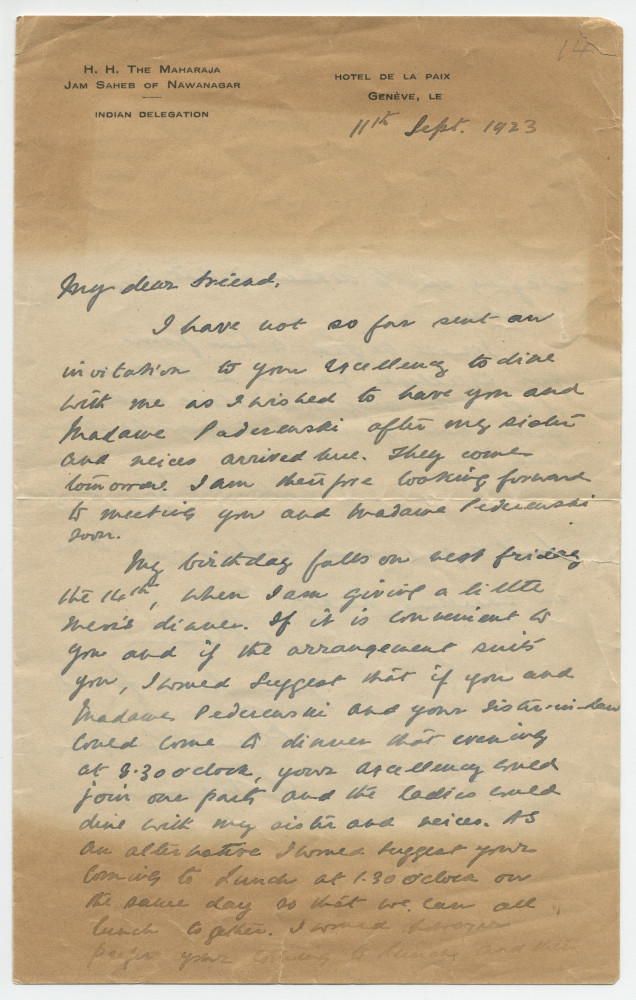 14
H. H. The Maharaja
Jam Saheb of Nawanagar
INDIAN DELEGATION
HOTEL DE LA PAIX
Genève, le
11th Sept. 1923
My dear friend,
I have not so far sent an
invitation to your Excellency to dine
with me as I wished to have you and
Madame Paderewski after my sister
and neices arrived here. They come
tomorrow. I am therefore looking forward
to meeting you and Madame Pederewski
soon.
My birthday falls on next friday
the 14th, when I am giving a little
men's dinner. If it is convenient to
you and if the arrangement suits
you, I would suggest that if you and
Madame Pederewski and your sister-in-law
could come to dinner that evening
at 8.30 o'clock, your Excellency could
join our party and the ladies could
dine with my sister and neices. As
an alternative I would suggest your
coming to Lunch at 1.30 o'clock on
the same day so that we can all
lunch together. I would however
prefer your coming to dinner and